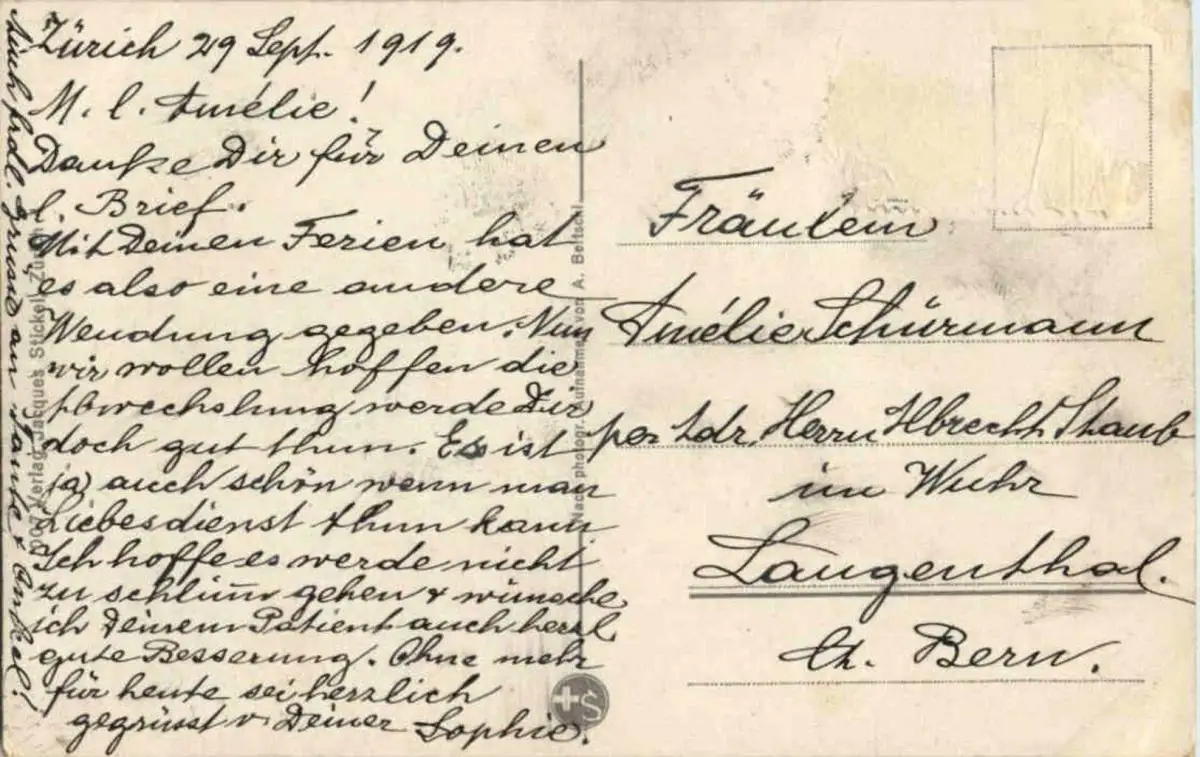 Zürich 29 Sept. 1919.
M. l. Amélie!
Danke Dir für Deinen
l. Brief.
Mit Deinen Ferien hat
es also eine andere
Wendung gegeben. Nun
wir wollen hoffen die
Abwechslung werde Dir
doch gut thun. Es ist
ja auch schön wenn man
Liebesdienst thun kann
Ich hoffe es werde nicht
zu schlimm gehen & wünsche
ich Deinem Patient auch herzl
gute Besserung. Ohne mehr
für heute sei herzlich
gegrüsst v. Deiner Sophie.
Auch frdl. Grüsse an Tante & Onkel!
Verlag Jacques Stickel, Zürich
Nach photogr. Aufnahmen von A. Bertschi
Fräulein
Amélie Schürmann
per Adr. Herrn Albrecht Staub
im Wuhr
Langenthal.
Ct. Bern.